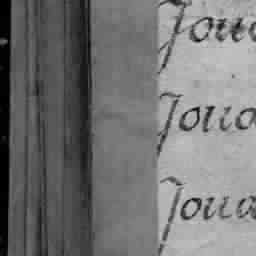 Joua
Joua
Joua